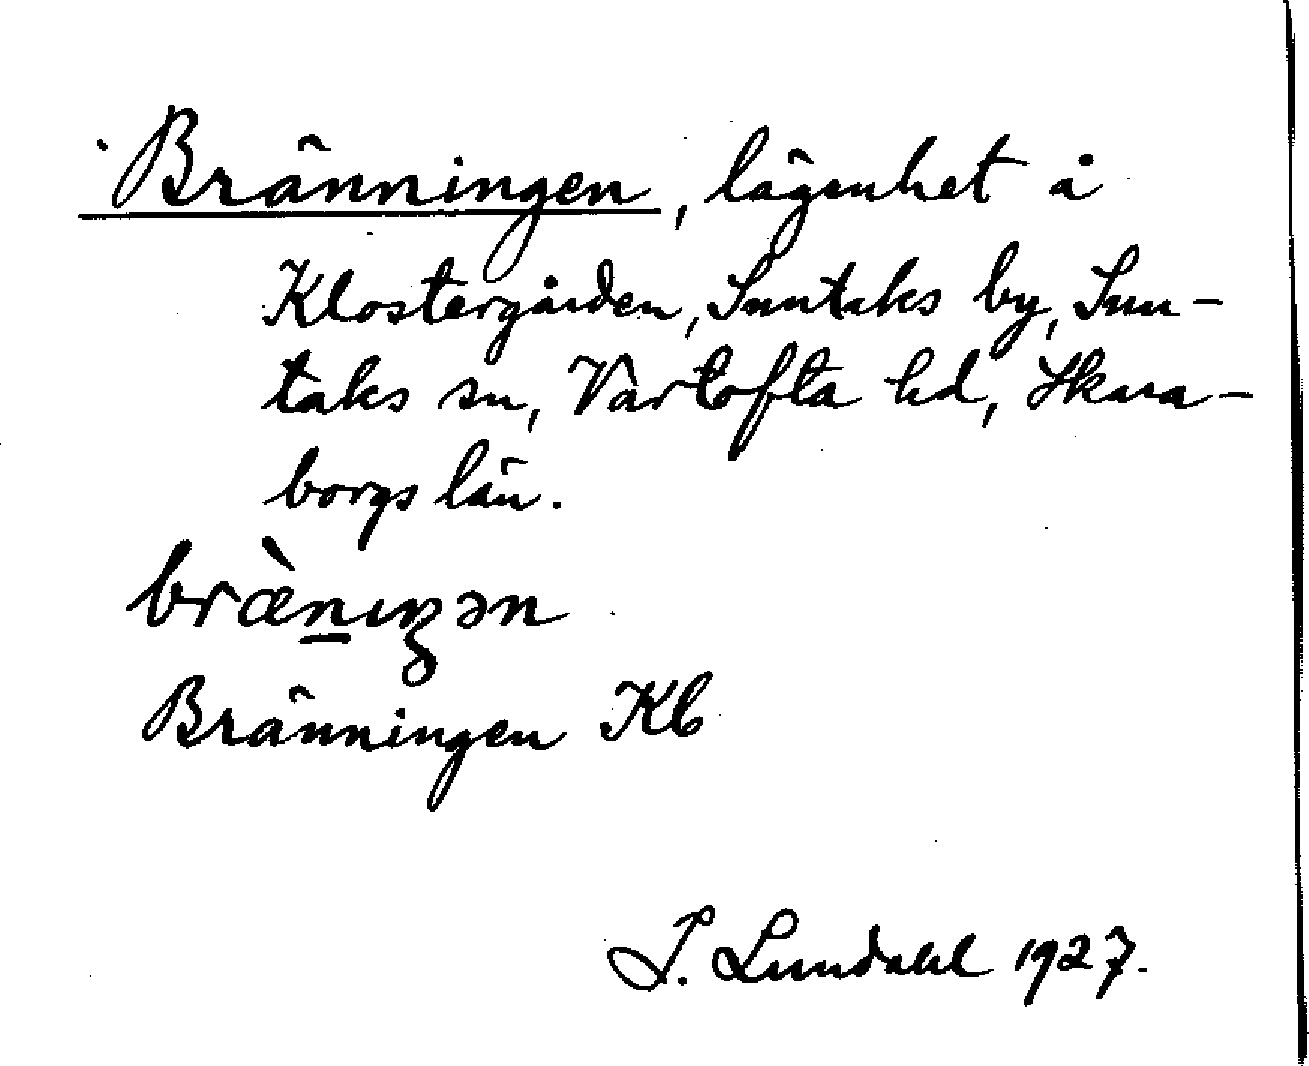 Bränningen, lägenhet å
Klostergården, Suntaks by, Sun-
taks sn, Vartofta hd, Skara-
borgs län.
bræ̀n̲ıŋən
Bränningen Kb
I. Lundahl 1927.